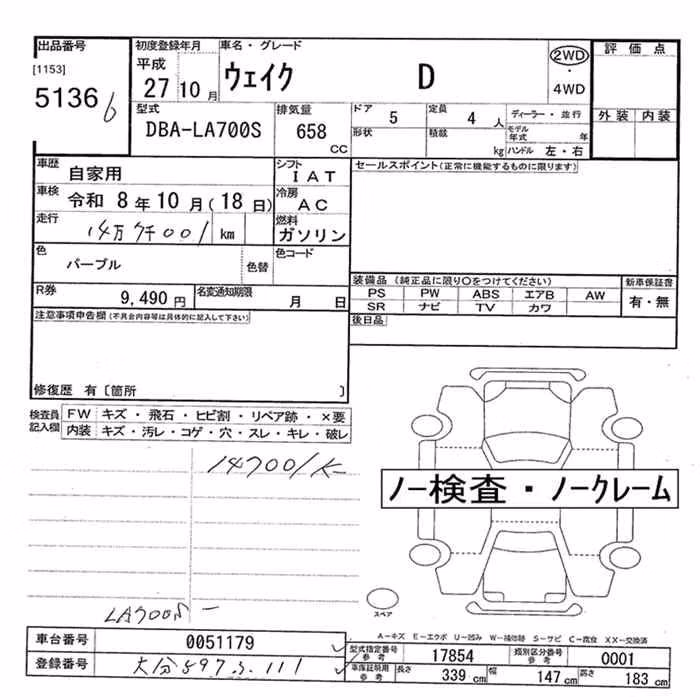 出品番号
[1153]
5136 6
初度登録年月
平成
27 10 月
車名・グレード
ウェイク D
2WD
・
4WD
評価点
外装 内装
型式
DBA-LA700S
排気量
658
CC
ドア
5
定員
4 人
ディーラー・並行
形状
積載
kg
モデル年式
年
ハンドル 左・右
車歴
自家用
シフト
IAT
セールスポイント(正常に機能するものに限ります)
車検
令和 8年10月(18日)
冷房
AC
走行
km
燃料
ガソリン
色
パープル
色替
色コード
装備品 (純正品に限り〇をつけてください)
新車保証書
PS PW ABS エアB AW
有・無
SR ナビ TV カワ
R券
9,490 円
名変通知期限
月 日
後日品
注意事項申告欄(不具合内容等は具体的に記入して下さい)
修復歴 有 [箇所 ]
検査員
記入欄
FW キズ・飛石・ヒビ割・リペア跡・×要
内装 キズ・汚レ・コゲ・穴・スレ・キレ・破レ
ノー検査・ノークレーム
スペア
LA700S -
A-キズ E-エクボ U-凹み W-補修跡 S-サビ C-腐食 XX-交換済
車台番号
0051179
型式指定番号
参考
17854
類別区分番号
参考
0001
登録番号
車庫証明用
参考
長さ
339 cm
幅
147 cm
高さ
183 cm